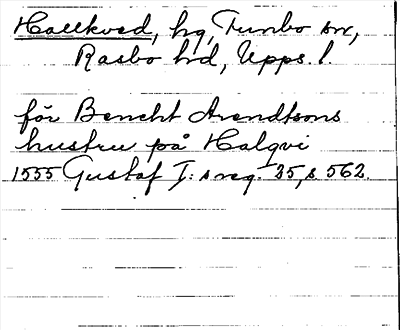 Hallkved, hg, Funbo sn,
Rasbo hd, Upps. l.
för Bencht Arendtsons
hustru på Halqvi
1555 Gustaf I:s reg. 25, s 562.